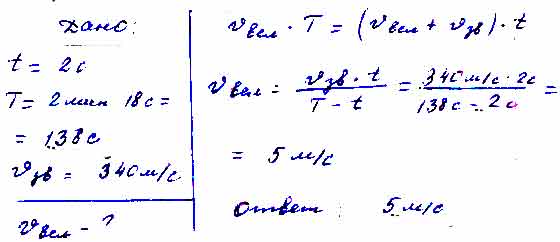 Дано:
t = 2с
T = 2 мин 18с =
= 138с
vзв = 340м/с
vвел - ?
vвел · T = (vвел + vзв) · t
vвел = vзв · t / T - t = 340м/с · 2с / 138с - 2с =
= 5 м/с
ответ: 5 м/с